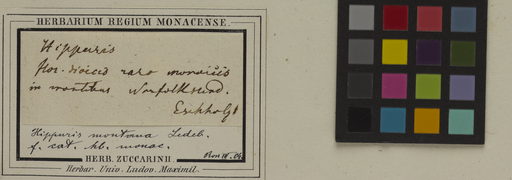 HERBARIUM REGIUM MONACENSE.
Hippuris
flor. dioicis raro monoicis
in montibus Norfolk sund.
Eschholz
Hippuris montana Ledeb.
f. cat. hb. monac.
HERB. ZUCCARINII.
Herbar. Univ. Ludov. Maximil.